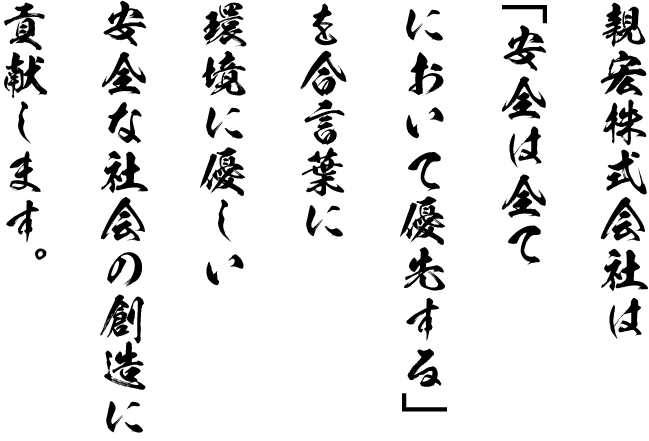 親宏株式会社は
「安全は全て
において優先する」
を合言葉に
環境に優しい
安全な社会の創造に
貢献します。